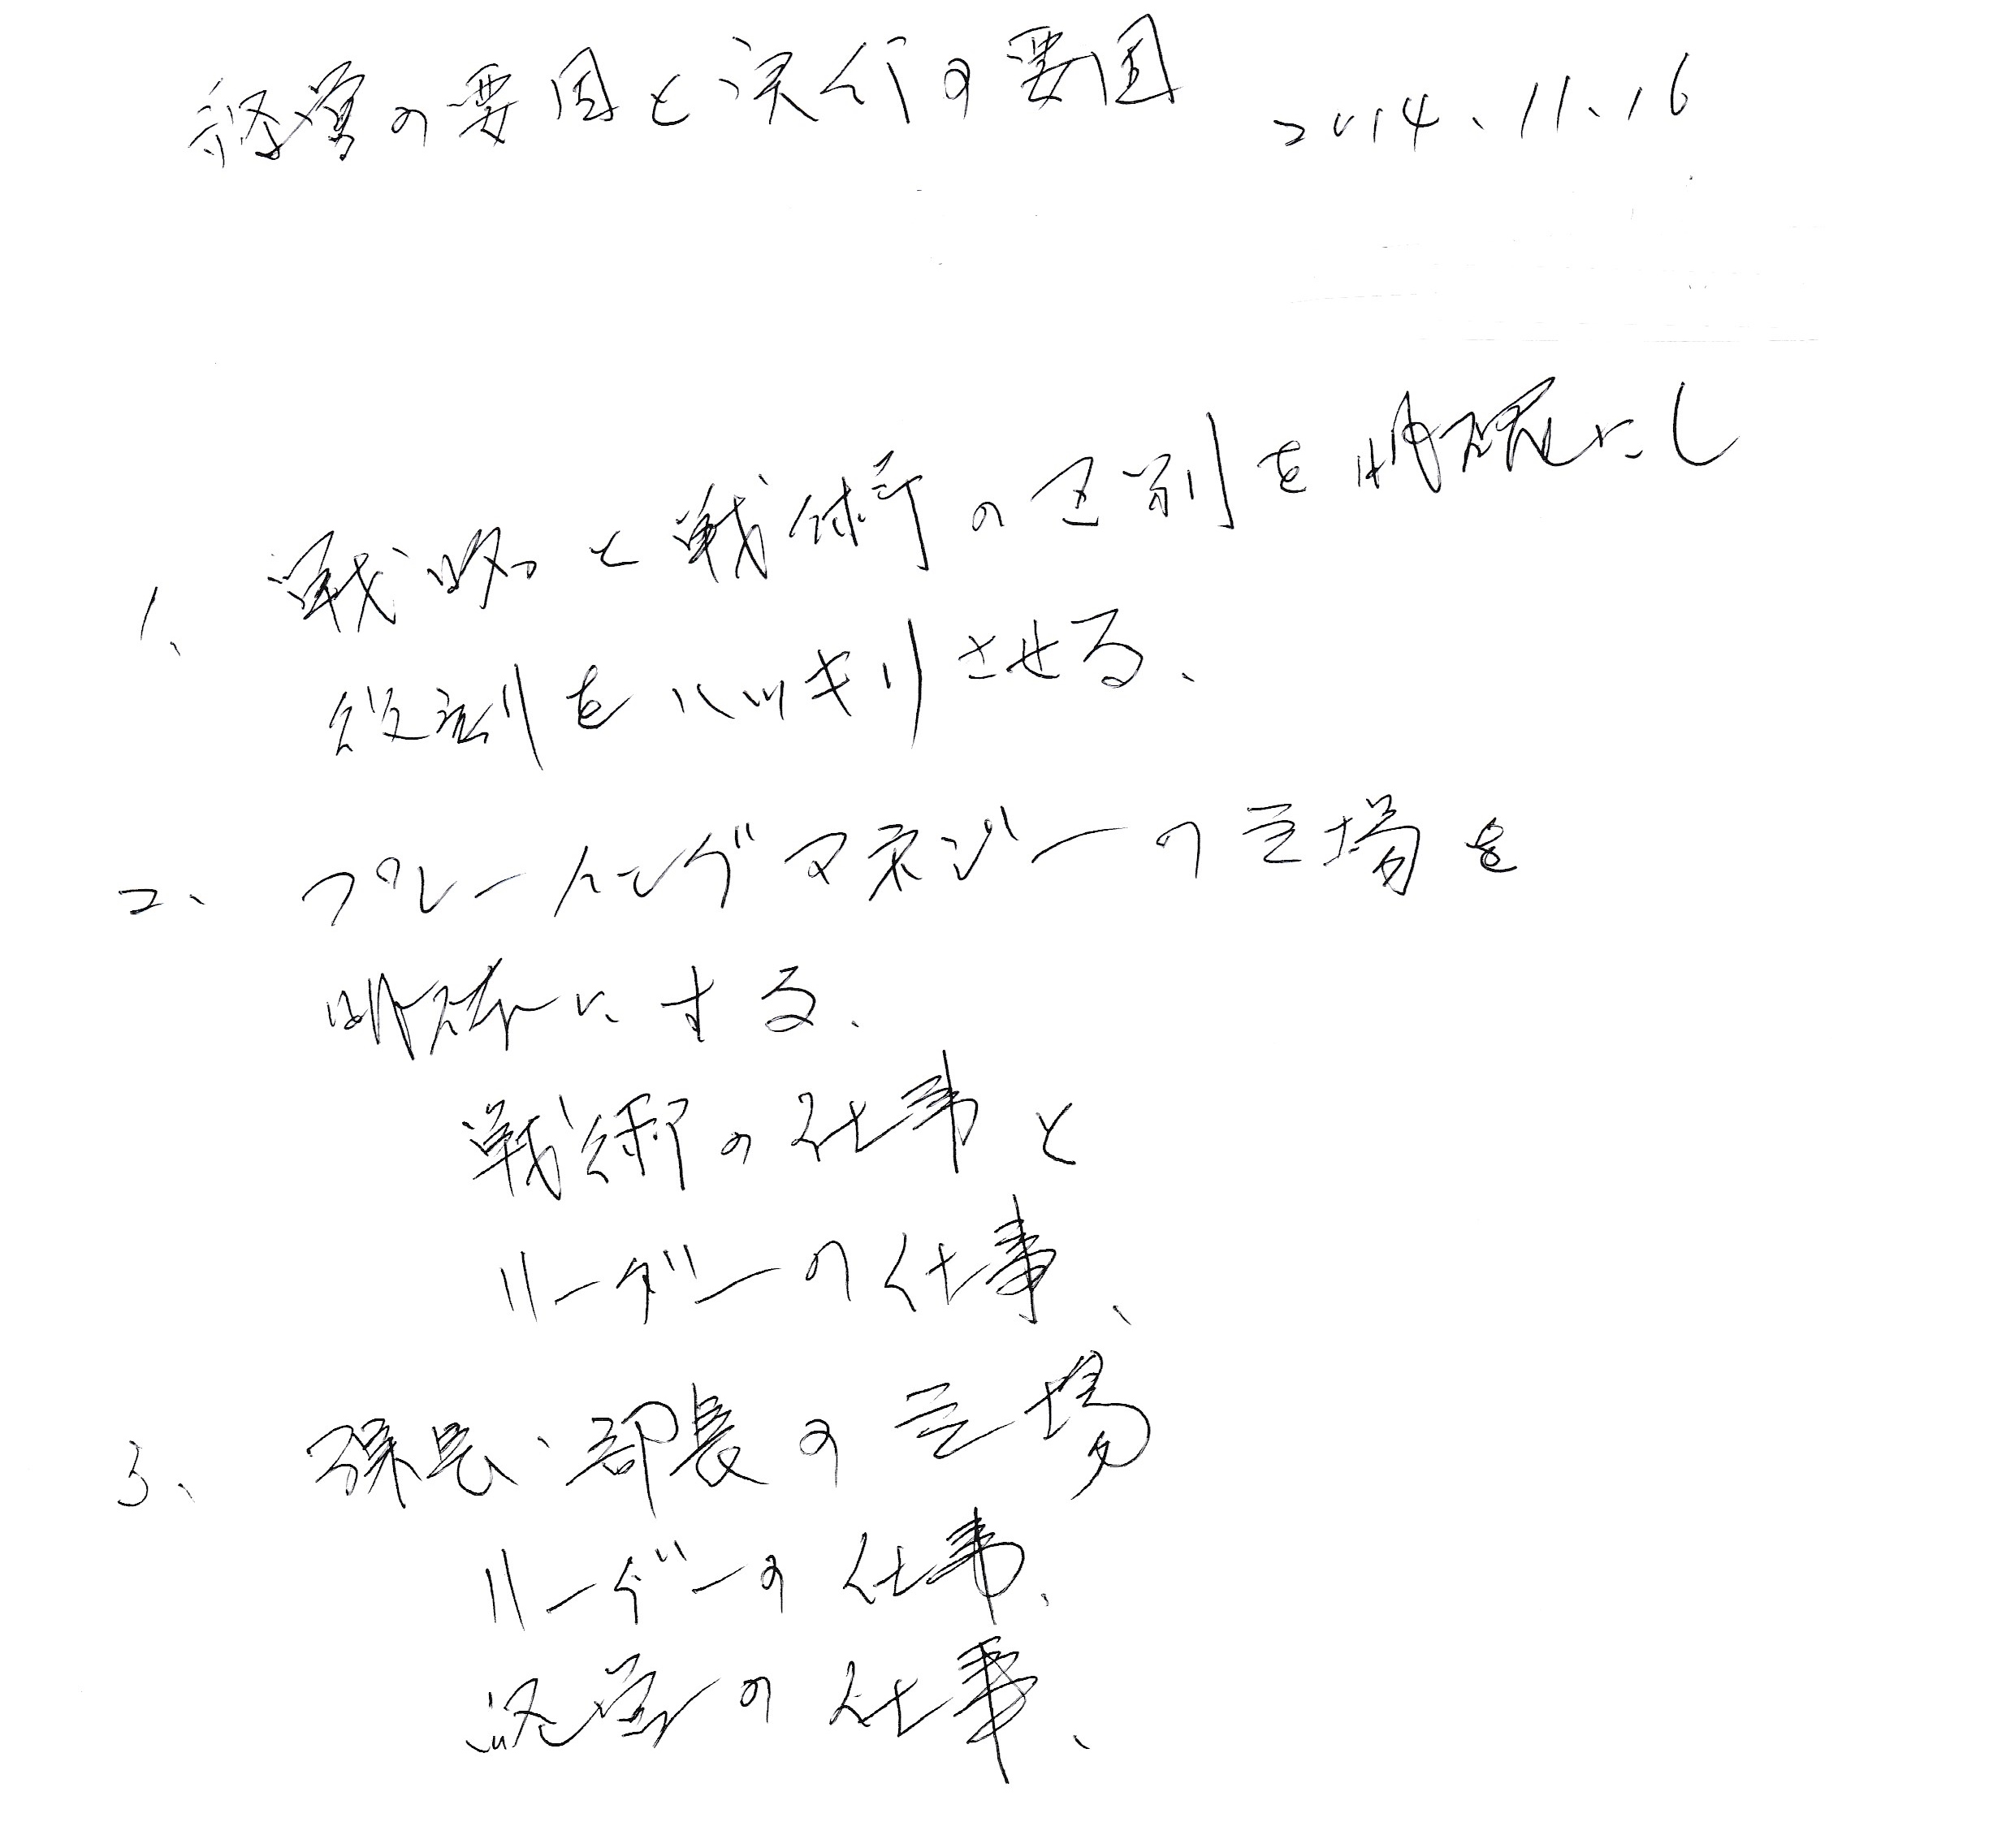 経営の要因と実行の要因 2014.11.16
1、戦略と戦術の区別を明確にし
役割をハッキリさせる、
2、プレーイングマネジーの立場を
明確にする、
戦術の仕事と
リーダーの仕事、
3、課長、部長の立場
リーダーの仕事、
経営の仕事、